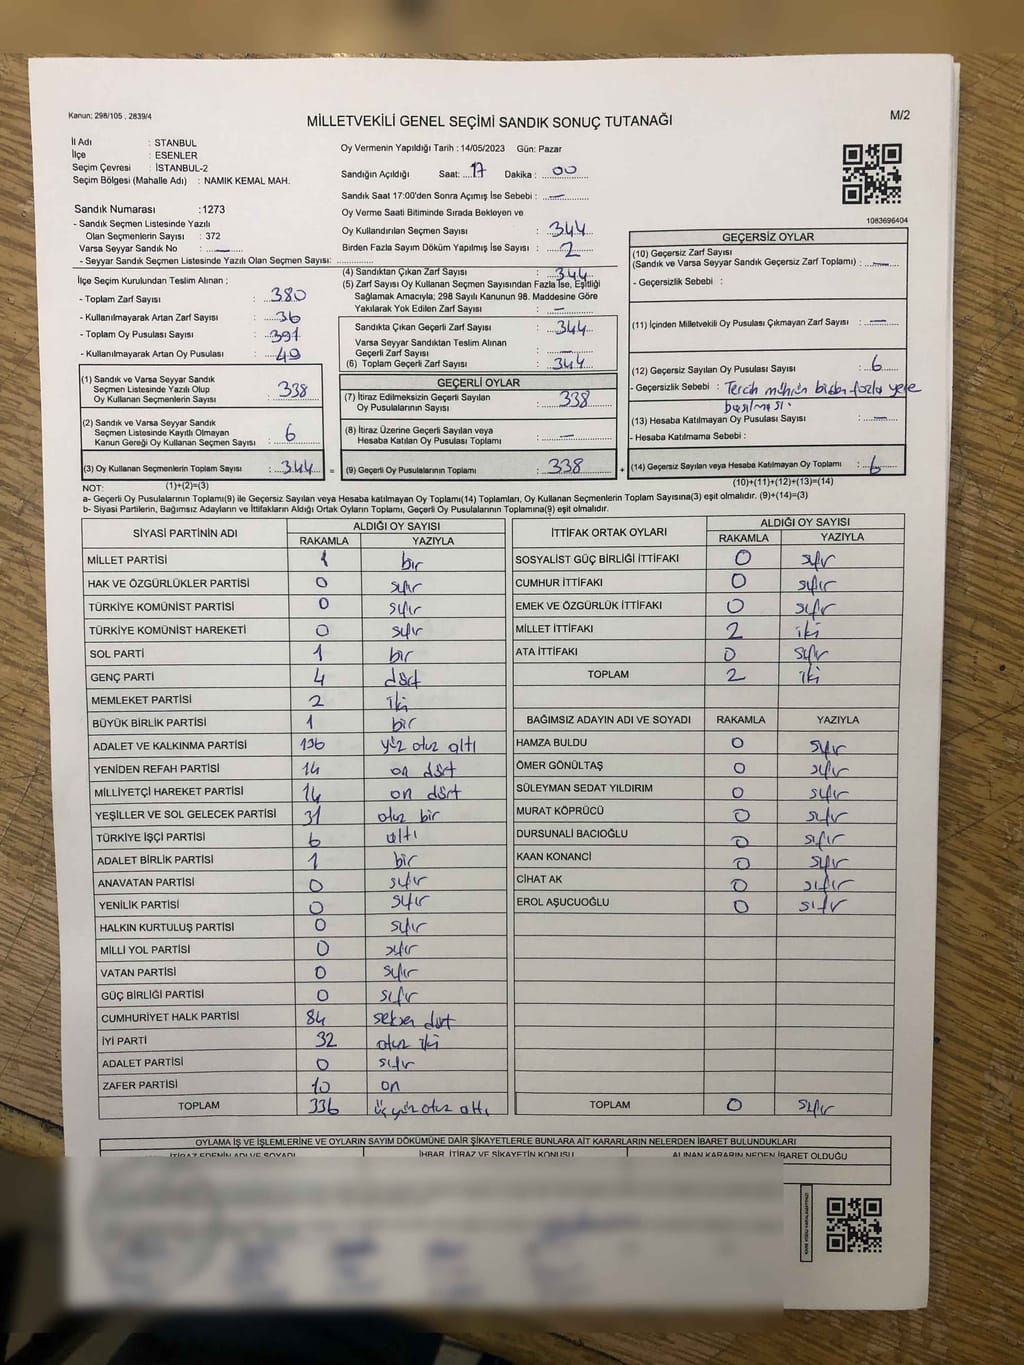 Kanun: 298/105 , 2839/4
M/2
MİLLETVEKİLİ GENEL SEÇİMİ SANDIK SONUÇ TUTANAĞI
İl Adı : STANBUL
İlçe : ESENLER
Seçim Çevresi : İSTANBUL-2
Seçim Bölgesi (Mahalle Adı) : NAMIK KEMAL MAH.
Sandık Numarası :1273
- Sandık Seçmen Listesinde Yazılı
Olan Seçmenlerin Sayısı : 372
Varsa Seyyar Sandık No : —
- Seyyar Sandık Seçmen Listesinde Yazılı Olan Seçmen Sayısı:
Oy Vermenin Yapıldığı Tarih : 14/05/2023 Gün: Pazar
Sandığın Açıldığı Saat: 17 Dakika : 00
Sandık Saat 17:00'den Sonra Açımış İse Sebebi : —
Oy Verme Saati Bitiminde Sırada Bekleyen ve
Oy Kullandırılan Seçmen Sayısı : 344
Birden Fazla Sayım Döküm Yapılmış İse Sayısı : 2
1083696404
İlçe Seçim Kurulundan Teslim Alınan ;
- Toplam Zarf Sayısı : 380
- Kullanılmayarak Artan Zarf Sayısı : 36
- Toplam Oy Pusulası Sayısı : 391
- Kullanılmayarak Artan Oy Pusulası : 49
(1) Sandık ve Varsa Seyyar Sandık
Seçmen Listesinde Yazılı Olup
Oy Kullanan Seçmenlerin Sayısı : 338
(2) Sandık ve Varsa Seyyar Sandık
Seçmen Listesinde Kayıtlı Olmayan
Kanun Gereği Oy Kullanan Seçmen Sayısı : 6
(3) Oy Kullanan Seçmenlerin Toplam Sayısı : 344 =
(1)+(2)=(3)
(4) Sandıktan Çıkan Zarf Sayısı : 344
(5) Zarf Sayısı Oy Kullanan Seçmen Sayısından Fazla İse, Eşitliği
Sağlamak Amacıyla; 298 Sayılı Kanunun 98. Maddesine Göre
Yakılarak Yok Edilen Zarf Sayısı : —
Sandıkta Çıkan Geçerli Zarf Sayısı : 344
Varsa Seyyar Sandıktan Teslim Alınan
Geçerli Zarf Sayısı : —
(6) Toplam Geçerli Zarf Sayısı : 344
GEÇERLİ OYLAR
(7) İtiraz Edilmeksizin Geçerli Sayılan
Oy Pusulalarının Sayısı : 338
(8) İtiraz Üzerine Geçerli Sayılan veya
Hesaba Katılan Oy Pusulası Toplamı : —
(9) Geçerli Oy Pusulalarının Toplamı : 338 +
GEÇERSİZ OYLAR
(10) Geçersiz Zarf Sayısı
(Sandık ve Varsa Seyyar Sandık Geçersiz Zarf Toplamı) : —
- Geçersizlik Sebebi :
(11) İçinden Milletvekili Oy Pusulası Çıkmayan Zarf Sayısı : —
(12) Geçersiz Sayılan Oy Pusulası Sayısı : 6
- Geçersizlik Sebebi : Tercih mührün birden fazla yere
basılması.
(13) Hesaba Katılmayan Oy Pusulası Sayısı : —
- Hesaba Katılmama Sebebi :
(14) Geçersiz Sayılan veya Hesaba Katılmayan Oy Toplamı : 6
(10)+(11)+(12)+(13)=(14)
NOT:
a- Geçerli Oy Pusulalarının Toplamı(9) ile Geçersiz Sayılan veya Hesaba katılmayan Oy Toplamı(14) Toplamları, Oy Kullanan Seçmenlerin Toplam Sayısına(3) eşit olmalıdır. (9)+(14)=(3)
b- Siyasi Partilerin, Bağımsız Adayların ve İttifakların Aldığı Ortak Oyların Toplamı, Geçerli Oy Pusulalarının Toplamına(9) eşit olmalıdır.
SİYASİ PARTİNİN ADI ALDIĞI OY SAYISI
RAKAMLA YAZIYLA
MİLLET PARTİSİ 1 bir
HAK VE ÖZGÜRLÜKLER PARTİSİ 0 sıfır
TÜRKİYE KOMÜNİST PARTİSİ 0 sıfır
TÜRKİYE KOMÜNİST HAREKETİ 0 sıfır
SOL PARTİ 1 bir
GENÇ PARTİ 4 dört
MEMLEKET PARTİSİ 2 iki
BÜYÜK BİRLİK PARTİSİ 1 bir
ADALET VE KALKINMA PARTİSİ 136 yüz otuz altı
YENİDEN REFAH PARTİSİ 14 on dört
MİLLİYETÇİ HAREKET PARTİSİ 14 on dört
YEŞİLLER VE SOL GELECEK PARTİSİ 31 otuz bir
TÜRKİYE İŞÇİ PARTİSİ 6 altı
ADALET BİRLİK PARTİSİ 1 bir
ANAVATAN PARTİSİ 0 sıfır
YENİLİK PARTİSİ 0 sıfır
HALKIN KURTULUŞ PARTİSİ 0 sıfır
MİLLİ YOL PARTİSİ 0 sıfır
VATAN PARTİSİ 0 sıfır
GÜÇ BİRLİĞİ PARTİSİ 0 sıfır
CUMHURİYET HALK PARTİSİ 84 seksen dört
İYİ PARTİ 32 otuz iki
ADALET PARTİSİ 0 sıfır
ZAFER PARTİSİ 10 on
TOPLAM 336 üç yüz otuz altı
İTTİFAK ORTAK OYLARI ALDIĞI OY SAYISI
RAKAMLA YAZIYLA
SOSYALİST GÜÇ BİRLİĞİ İTTİFAKI 0 sıfır
CUMHUR İTTİFAKI 0 sıfır
EMEK VE ÖZGÜRLÜK İTTİFAKI 0 sıfır
MİLLET İTTİFAKI 2 iki
ATA İTTİFAKI 0 sıfır
TOPLAM 2 iki
BAĞIMSIZ ADAYIN ADI VE SOYADI RAKAMLA YAZIYLA
HAMZA BULDU 0 sıfır
ÖMER GÖNÜLTAŞ 0 sıfır
SÜLEYMAN SEDAT YILDIRIM 0 sıfır
MURAT KÖPRÜCÜ 0 sıfır
DURSUNALİ BACIOĞLU 0 sıfır
KAAN KONANCİ 0 sıfır
CİHAT AK 0 sıfır
EROL AŞUCUOĞLU 0 sıfır
TOPLAM 0 sıfır
OYLAMA İŞ VE İŞLEMLERİNE VE OYLARIN SAYIM DÖKÜMÜNE DAİR ŞİKAYETLERLE BUNLARA AİT KARARLARIN NELERDEN İBARET BULUNDUKLARI
İTİRAZ EDENİN ADI VE SOYADI İHBAR, İTİRAZ VE ŞİKAYETİN KONUSU ALINAN KARARIN NEDEN İBARET OLDUĞU